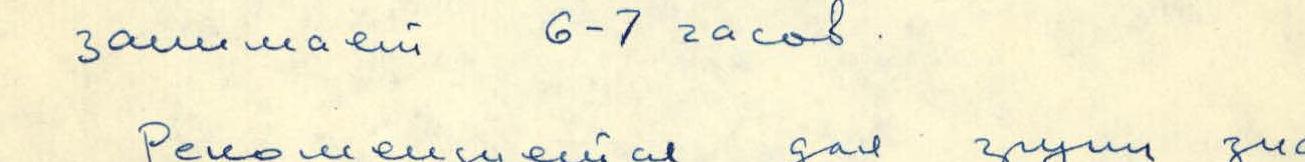 занимает 6-7 часов.
Рекомендуется для групп